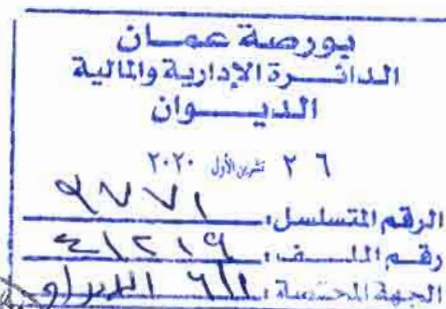 بورصة عمـــان
الدائـــرة الإدارية والمالية
الديـــــوان
٢ ٦ تشرين الأول ٢٠٢٠
الرقم المتسلسل: ٩٧٧١
رقـــم الملـــف: ٤١٢١٩
الجهة المختصة: